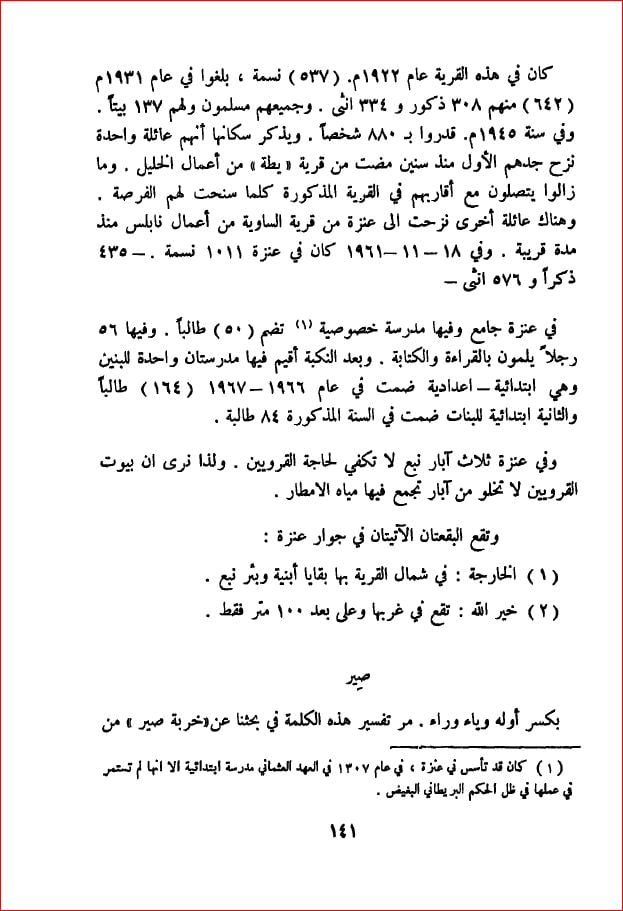 كان في هذه القرية عام ١٩٢٢م. (٥٣٧) نسمة ، بلغوا في عام ١٩٣١م
(٦٤٢) منهم ٣٠٨ ذكور و ٣٣٤ انثى . وجميعهم مسلمون ولهم ١٣٧ بيتاً .
وفي سنة ١٩٤٥م. قدروا بـ ٨٨٠ شخصاً . ويذكر سكانها أنهم عائلة واحدة
نزح جدهم الأول منذ سنين مضت من قرية « يطة » من أعمال الخليل . وما
زالوا يتصلون مع أقاربهم في القرية المذكورة كلما سنحت لهم الفرصة .
وهناك عائلة أخرى نزحت الى عنزة من قرية الساوية من أعمال نابلس منذ
مدة قريبة . وفي ١٨ – ١١ – ١٩٦١ كان في عنزة ١٠١١ نسمة . – ٤٣٥
ذكراً و ٥٧٦ انثى –
في عنزة جامع وفيها مدرسة خصوصية (١) تضم (٥٠) طالباً . وفيها ٥٦
رجلاً يلمون بالقراءة والكتابة . وبعد النكبة أقيم فيها مدرستان واحدة للبنين
وهي ابتدائية – اعدادية ضمت في عام ١٩٦٦ – ١٩٦٧ (١٦٤) طالباً
والثانية ابتدائية للبنات ضمت في السنة المذكورة ٨٤ طالبة .
وفي عنزة ثلاث آبار نبع لا تكفي لحاجة القرويين . ولذا نرى ان بيوت
القرويين لا تخلو من آبار تجمع فيها مياه الامطار .
وتقع البقعتان الآتيتان في جوار عنزة :
(١) الخارجة : في شمال القرية بها بقايا أبنية وبئر نبع .
(٢) خير الله : تقع في غربها وعلى بعد ١٠٠ متر فقط .
صِير
بكسر أوله وياء وراء . مر تفسير هذه الكلمة في بحثنا عن «خربة صير » من
(١) كان قد تأسس في عنزة ، في عام ١٣٠٧ في العهد العثماني مدرسة ابتدائية الا انها لم تستمر
في عملها في ظل الحكم البريطاني البغيض .
١٤١